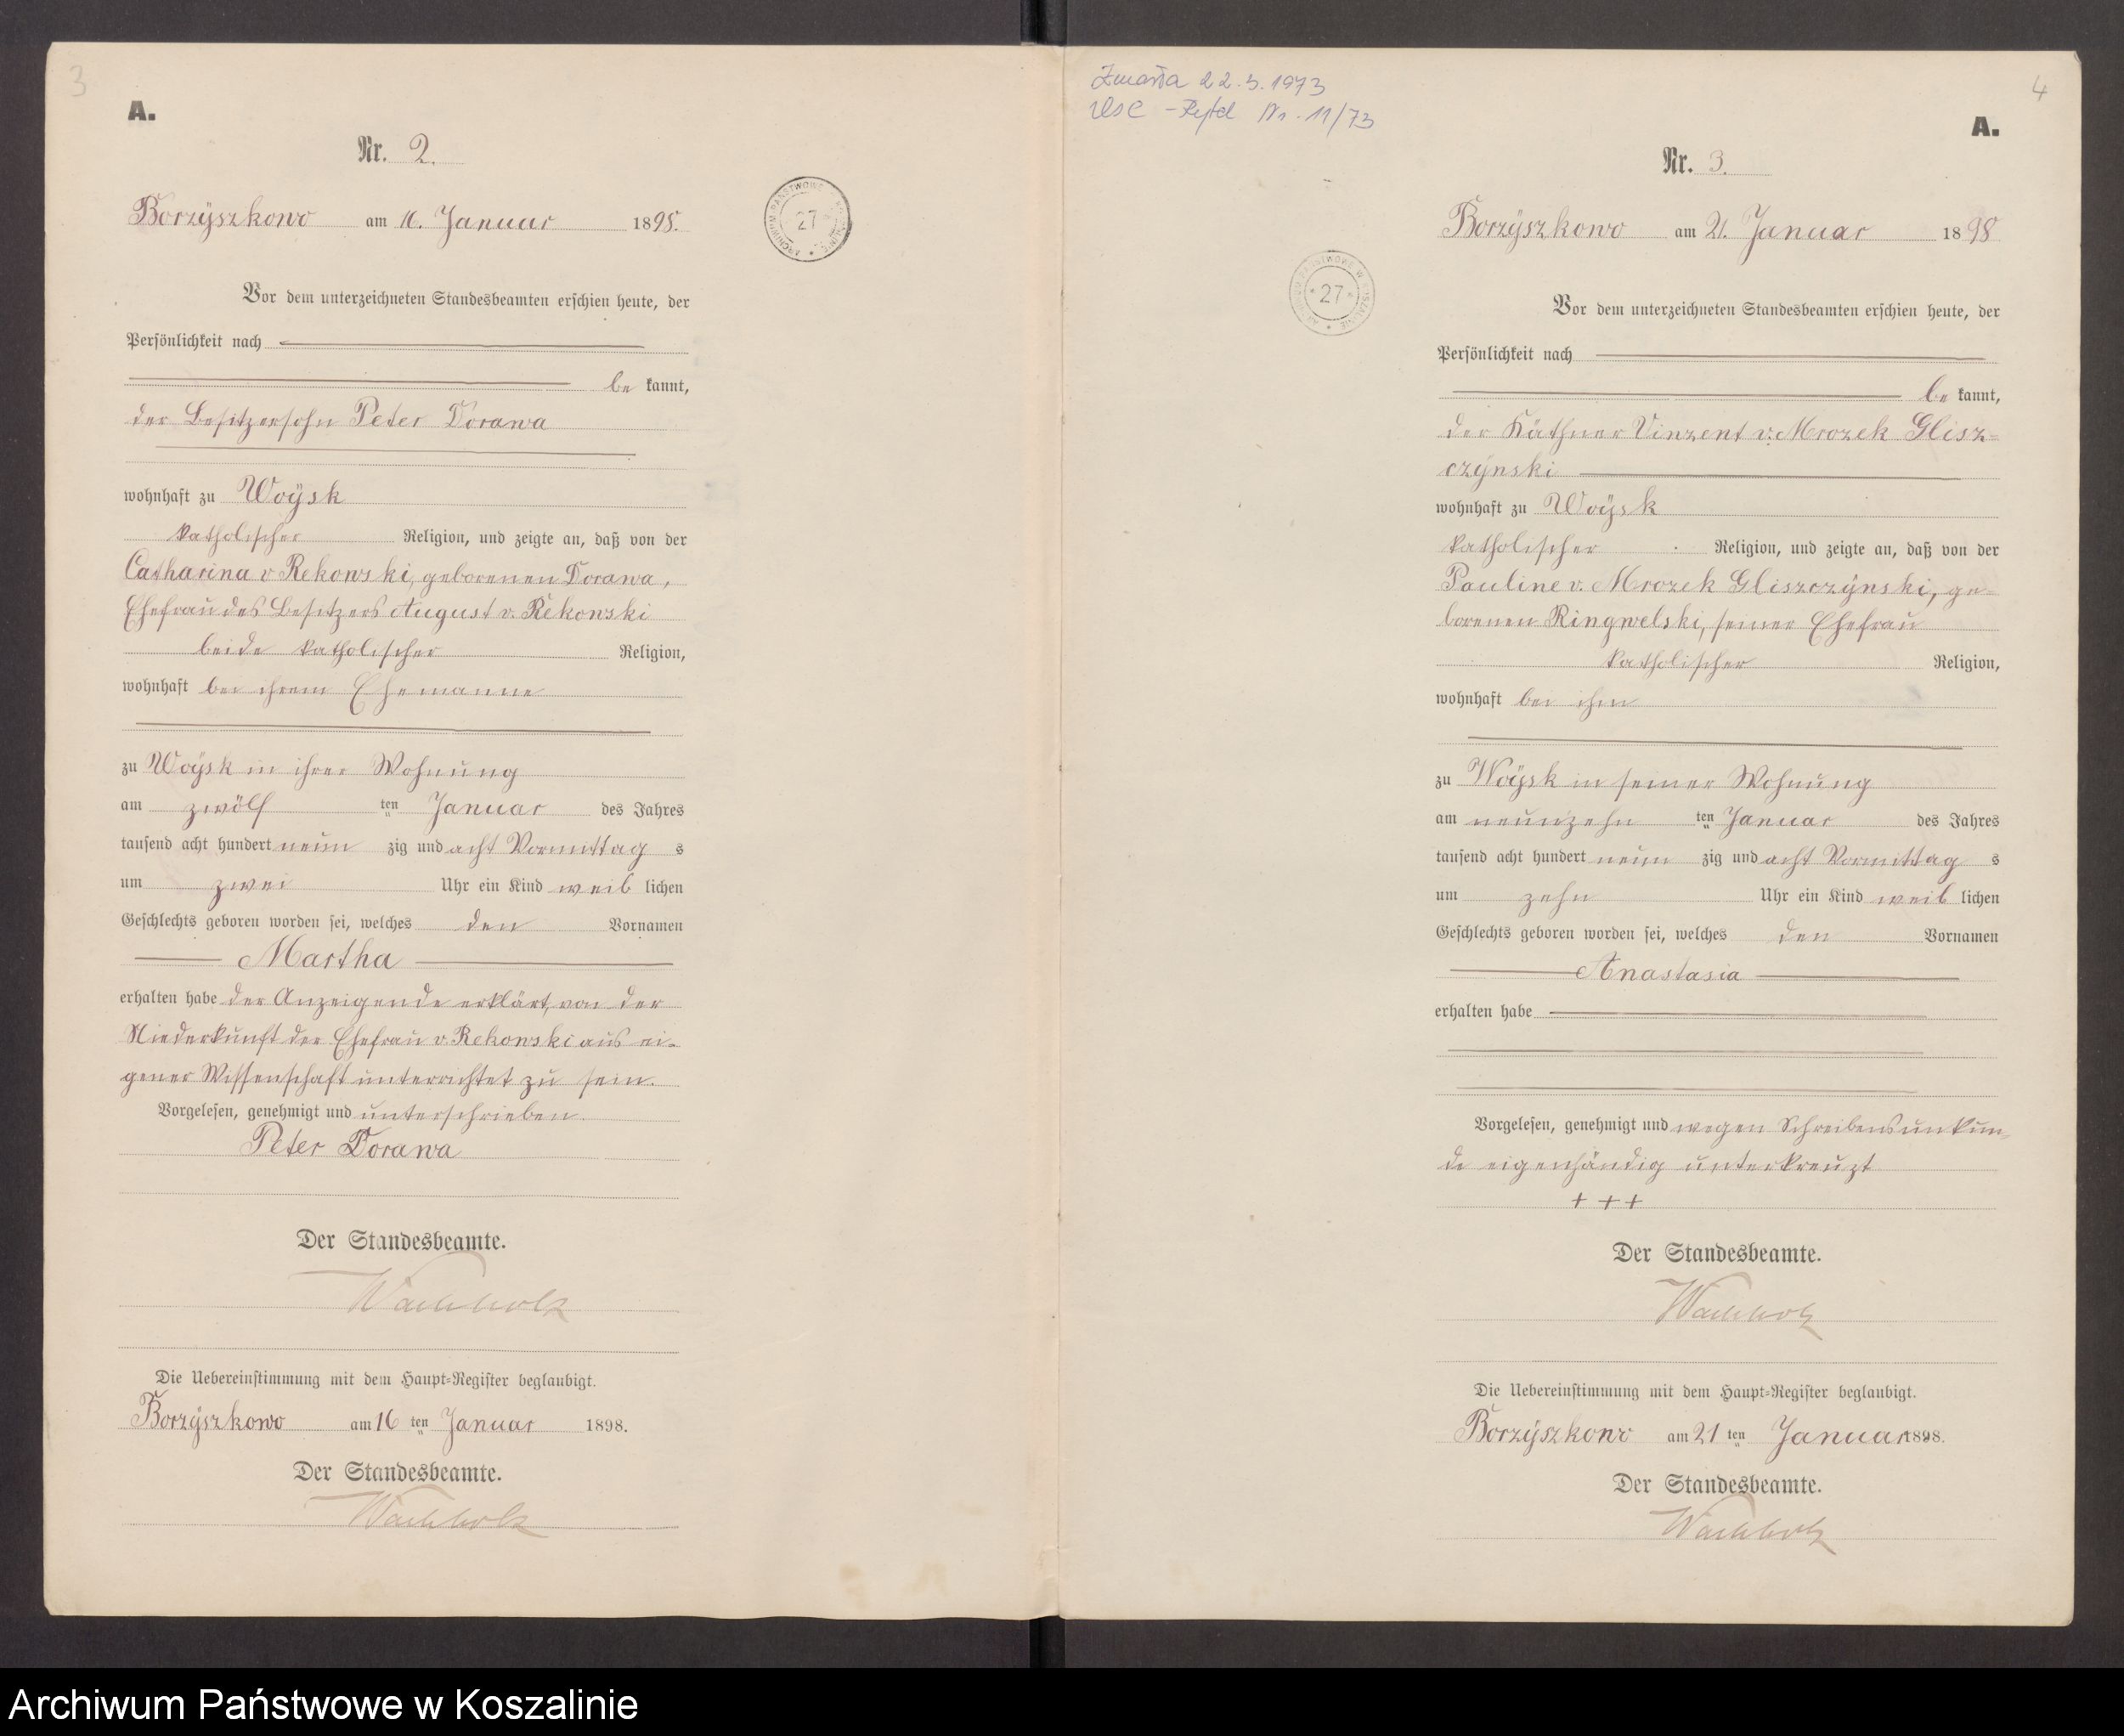 3
A.
Nr. 2.
Borzÿszkowo am 16. Januar 1898.
Vor dem unterzeichneten Standesbeamten erschien heute, der
Persönlichkeit nach
be kannt,
der Besitzersohn Peter Dorawa
wohnhaft zu Woÿsk
katholischer Religion, und zeigte an, daß von der
Catharina v Rekowski, geborenen Dorawa,
Ehefrau des Besitzers August v. Rekowski
beide katholischer Religion,
wohnhaft bei ihrem Ehemanne
zu Woÿsk in ihrer Wohnung
am zwölf ten Januar des Jahres
tausend acht hundert neun zig und acht Vormittag s
um zwei Uhr ein Kind weib lichen
Geschlechts geboren worden sei, welches den Vornamen
Martha
erhalten habe der Anzeigende erklärt, von der
Niederkunft der Ehefrau v. Rekowski aus ei-
gener Wissenschaft unterrichtet zu sein.
Vorgelesen, genehmigt und unterschrieben.
Peter Dorawa
Der Standesbeamte.
Wachholz
Die Uebereinstimmung mit dem Haupt-Register beglaubigt.
Borzÿszkowo am 16 ten Januar 1898.
Der Standesbeamte.
Wachholz
ARCHIWUM PAŃSTWOWE W KOSZALINIE
27
Zmarła 22.5.1973
USC - Rytel Nr. 11/73
4
A.
Nr. 3.
Borzÿszkowo am 21. Januar 1898
ARCHIWUM PAŃSTWOWE W KOSZALINIE
27
Vor dem unterzeichneten Standesbeamten erschien heute, der
Persönlichkeit nach
be kannt,
der Käthner Vinzent v. Mrozek Glisz-
czÿnski
wohnhaft zu Woÿsk
katholischer Religion, und zeigte an, daß von der
Pauline v. Mrozek Gliszczÿnski, ge-
borenen Ringwelski, seiner Ehefrau
katholischer Religion,
wohnhaft bei ihm
zu Woÿsk in seiner Wohnung
am neunzehn ten Januar des Jahres
tausend acht hundert neun zig und acht Vormittag s
um zehn Uhr ein Kind weib lichen
Geschlechts geboren worden sei, welches den Vornamen
Anastasia
erhalten habe
Vorgelesen, genehmigt und wegen Schreibensunkun-
de eigenhändig unterkreuzt
+ + +
Der Standesbeamte.
Wachholz
Die Uebereinstimmung mit dem Haupt-Register beglaubigt.
Borzÿszkowo am 21 ten Januar 1898.
Der Standesbeamte.
Wachholz
Archiwum Państwowe w Koszalinie